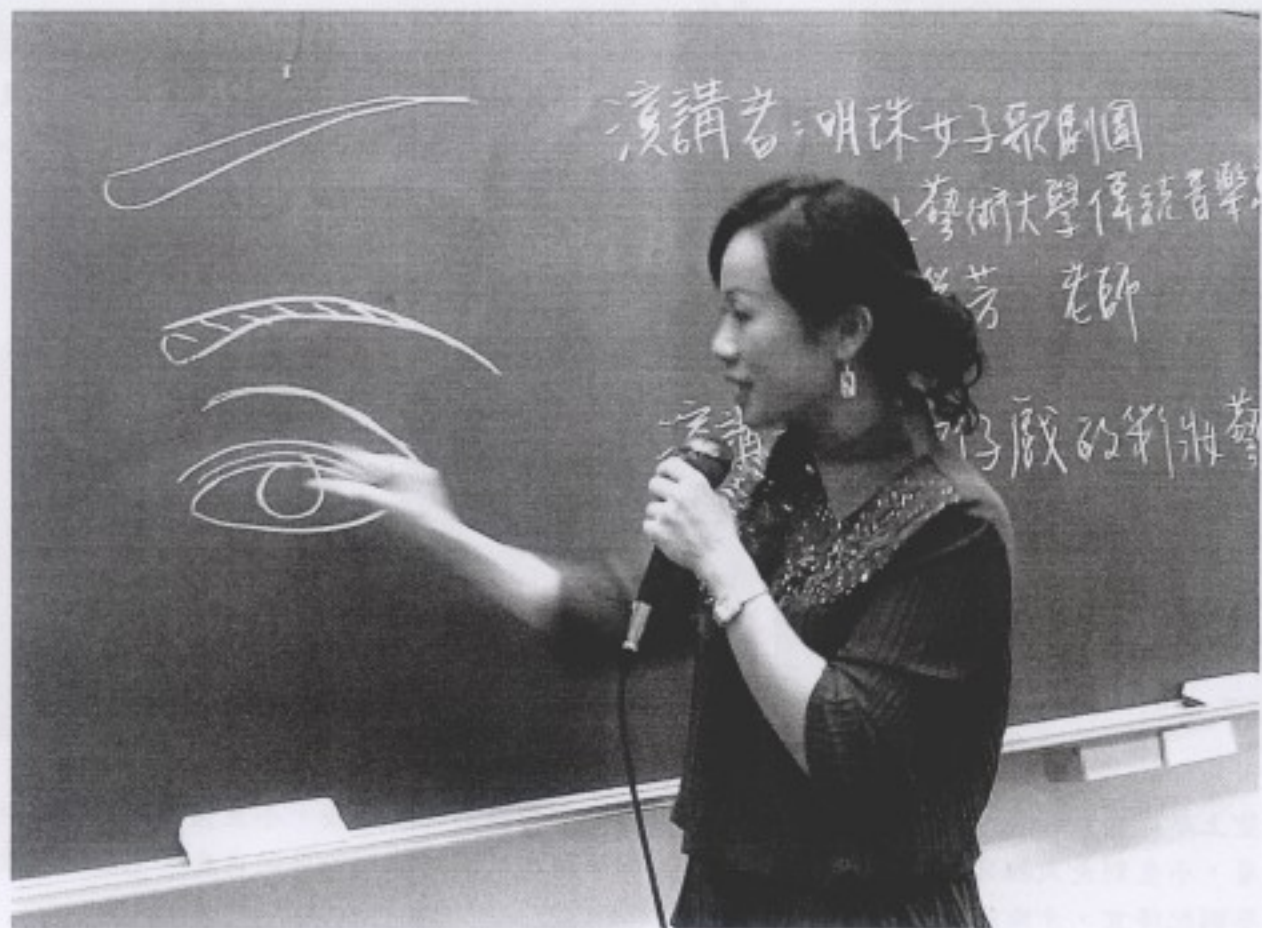 演講者：明珠女子歌劇團
藝術大學傳統音樂
芳 老師
演講 仔戲的彩妝藝